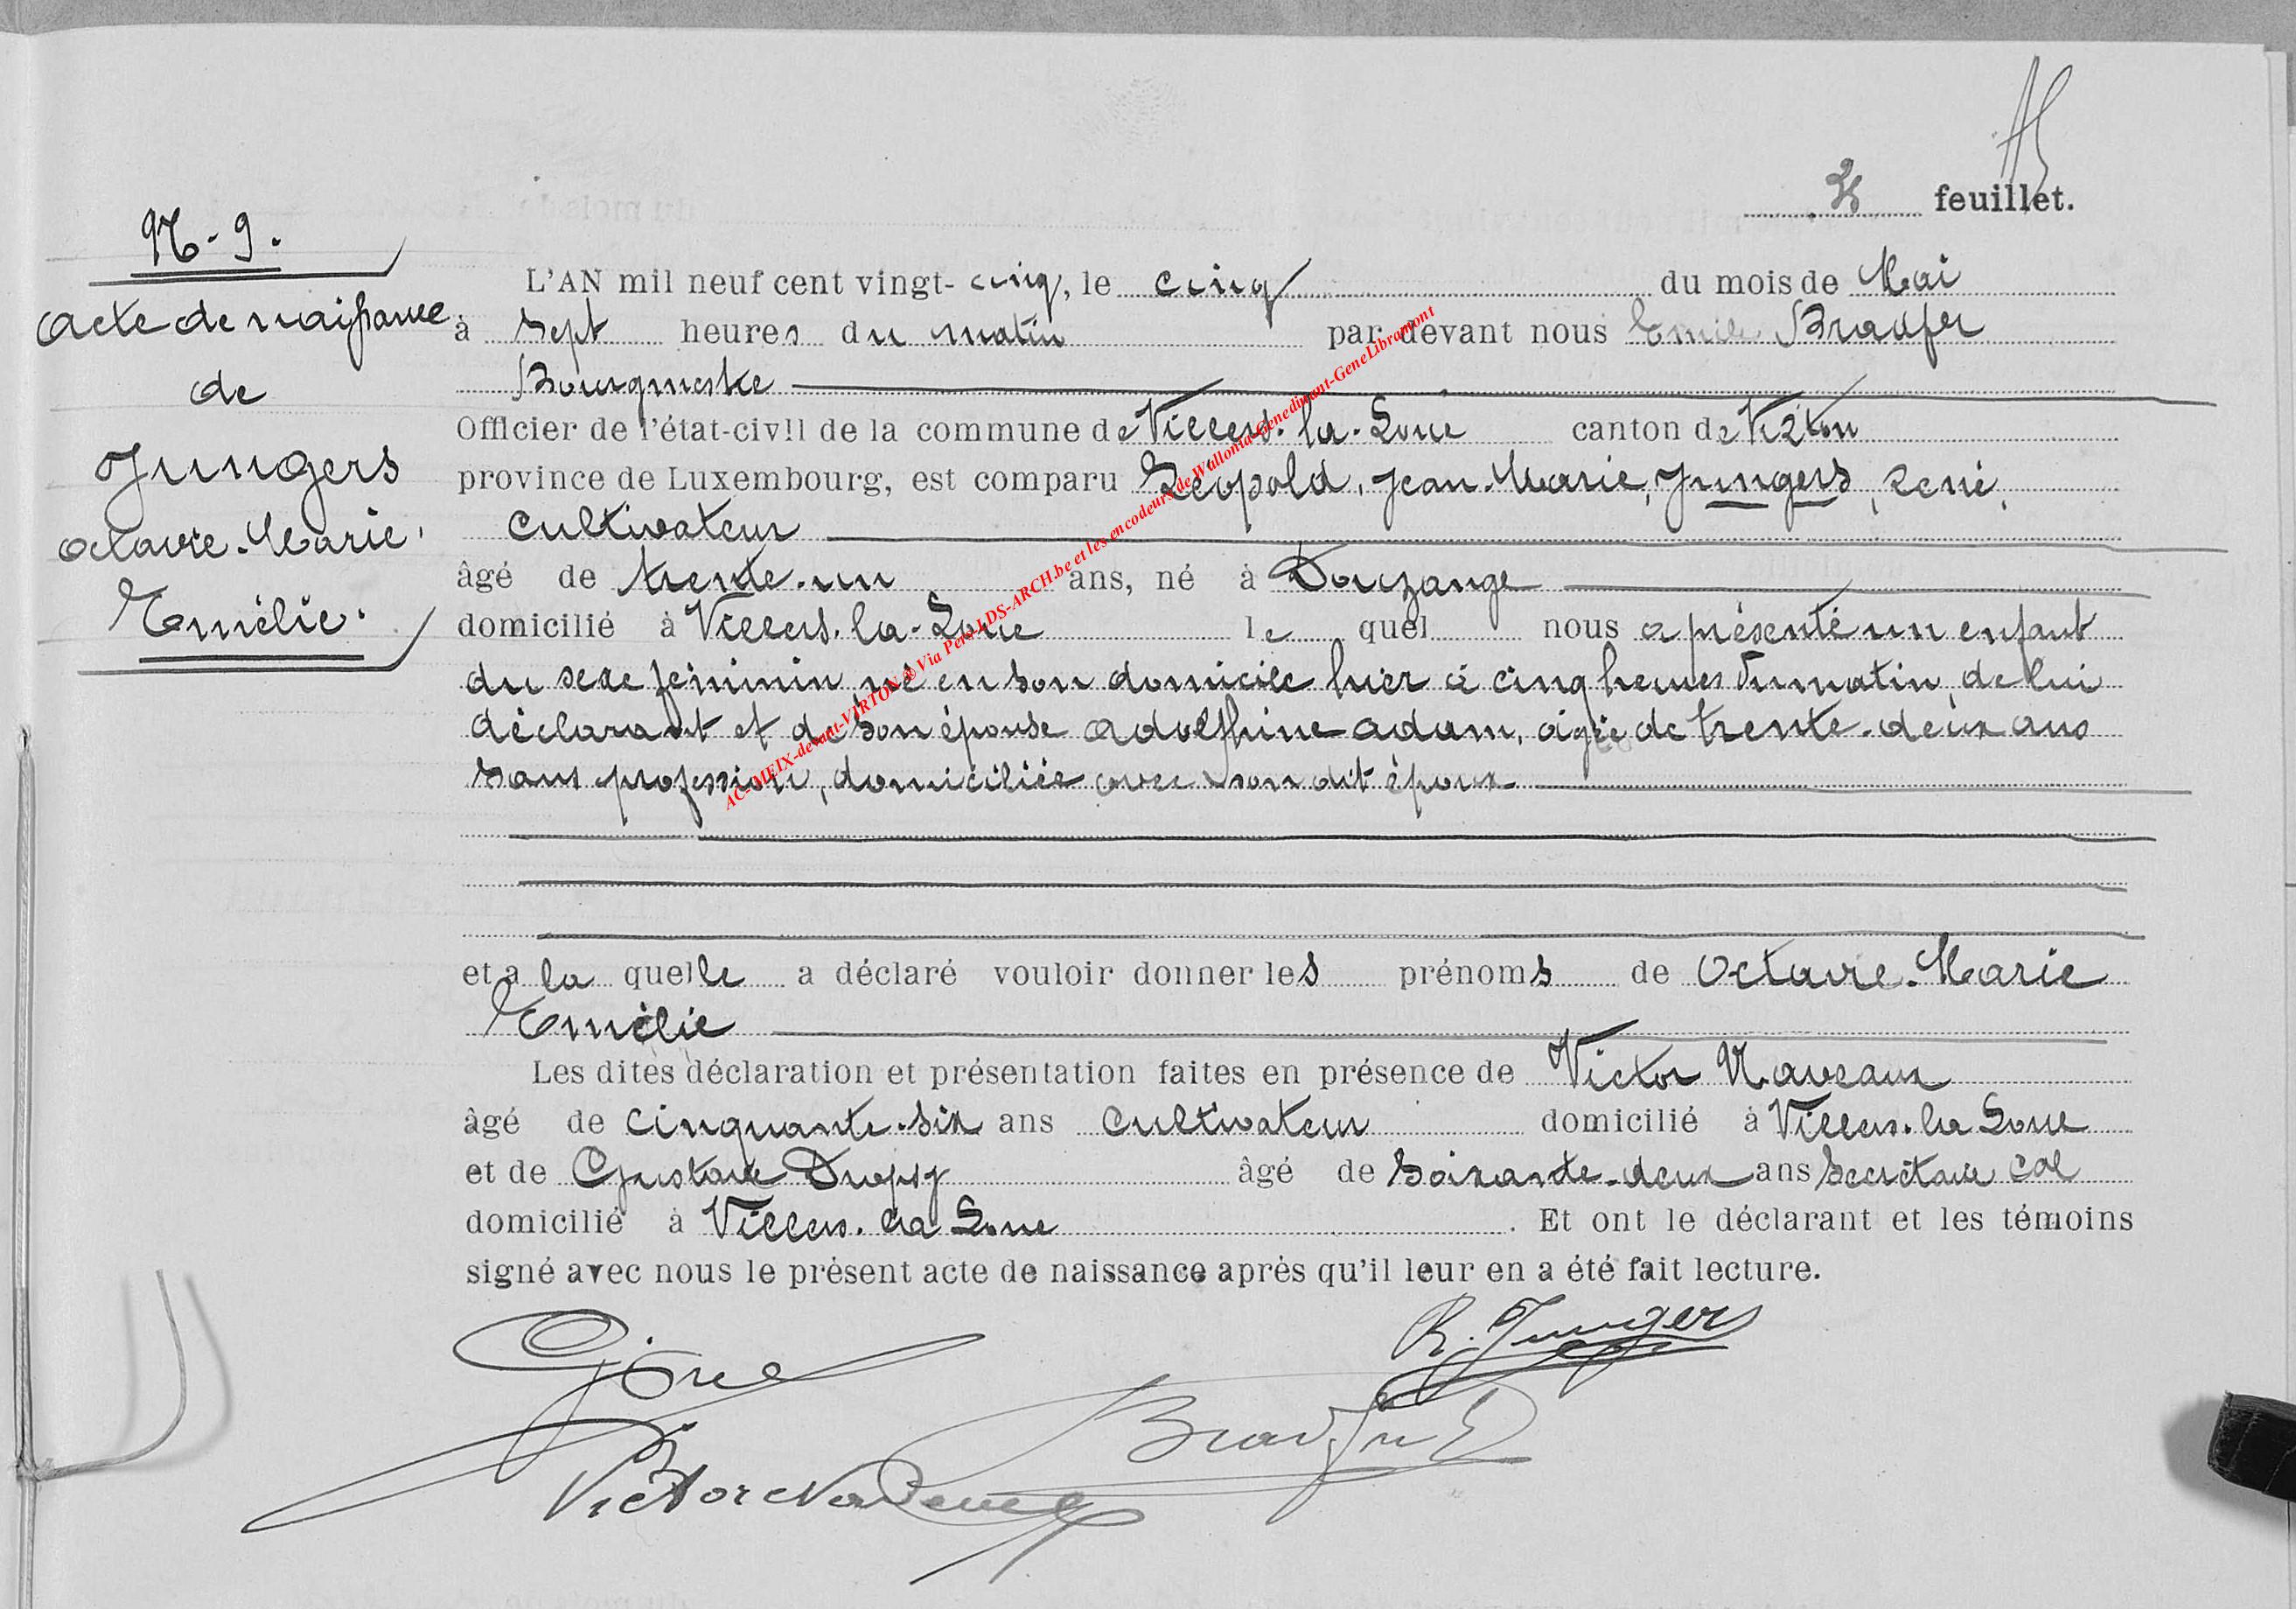 feuillet.
N. 9.
Acte de naissance
de
Jungers
Octavie. Marie.
Emélie.
L'AN mil neuf cent vingt- cinq, le cinq du mois de Mai
à Sept heures du matin par devant nous Emile Braufer
Bourgmestre
Officier de l'état-civil de la commune de Villers. la. Loue canton de Virton
province de Luxembourg, est comparu Léopold, Jean. Marie, Jungers, René,
cultivateur
âgé de trente. un ans, né à
domicilié à Villers. la. Loue le quel nous a présenté un enfant
du sexe féminin, né en son domicile hier à cinq heures du matin, de lui
déclarant et de son épouse Adolphine Adam, âgée de trente. deux ans
sans profession, domiciliée avec son dit époux
et a la quelle a déclaré vouloir donner les prénoms de Octavie. Marie
Emélie
Les dites déclaration et présentation faites en présence de Victor Naveaux
âgé de cinquante. six ans cultivateur domicilié à Villers. la Loue
et de Gustave Dropsy âgé de soixante. deux ans secrétaire cal
domicilié à Villers. la Loue . Et ont le déclarant et les témoins
signé avec nous le présent acte de naissance après qu'il leur en a été fait lecture.
R. Jungers
Victor
AC-MEIX-devant-VIRTON @ Via Pers LDS-ARCH.be et les encodeurs de Wallonia-Genedinant-GeneLibramont